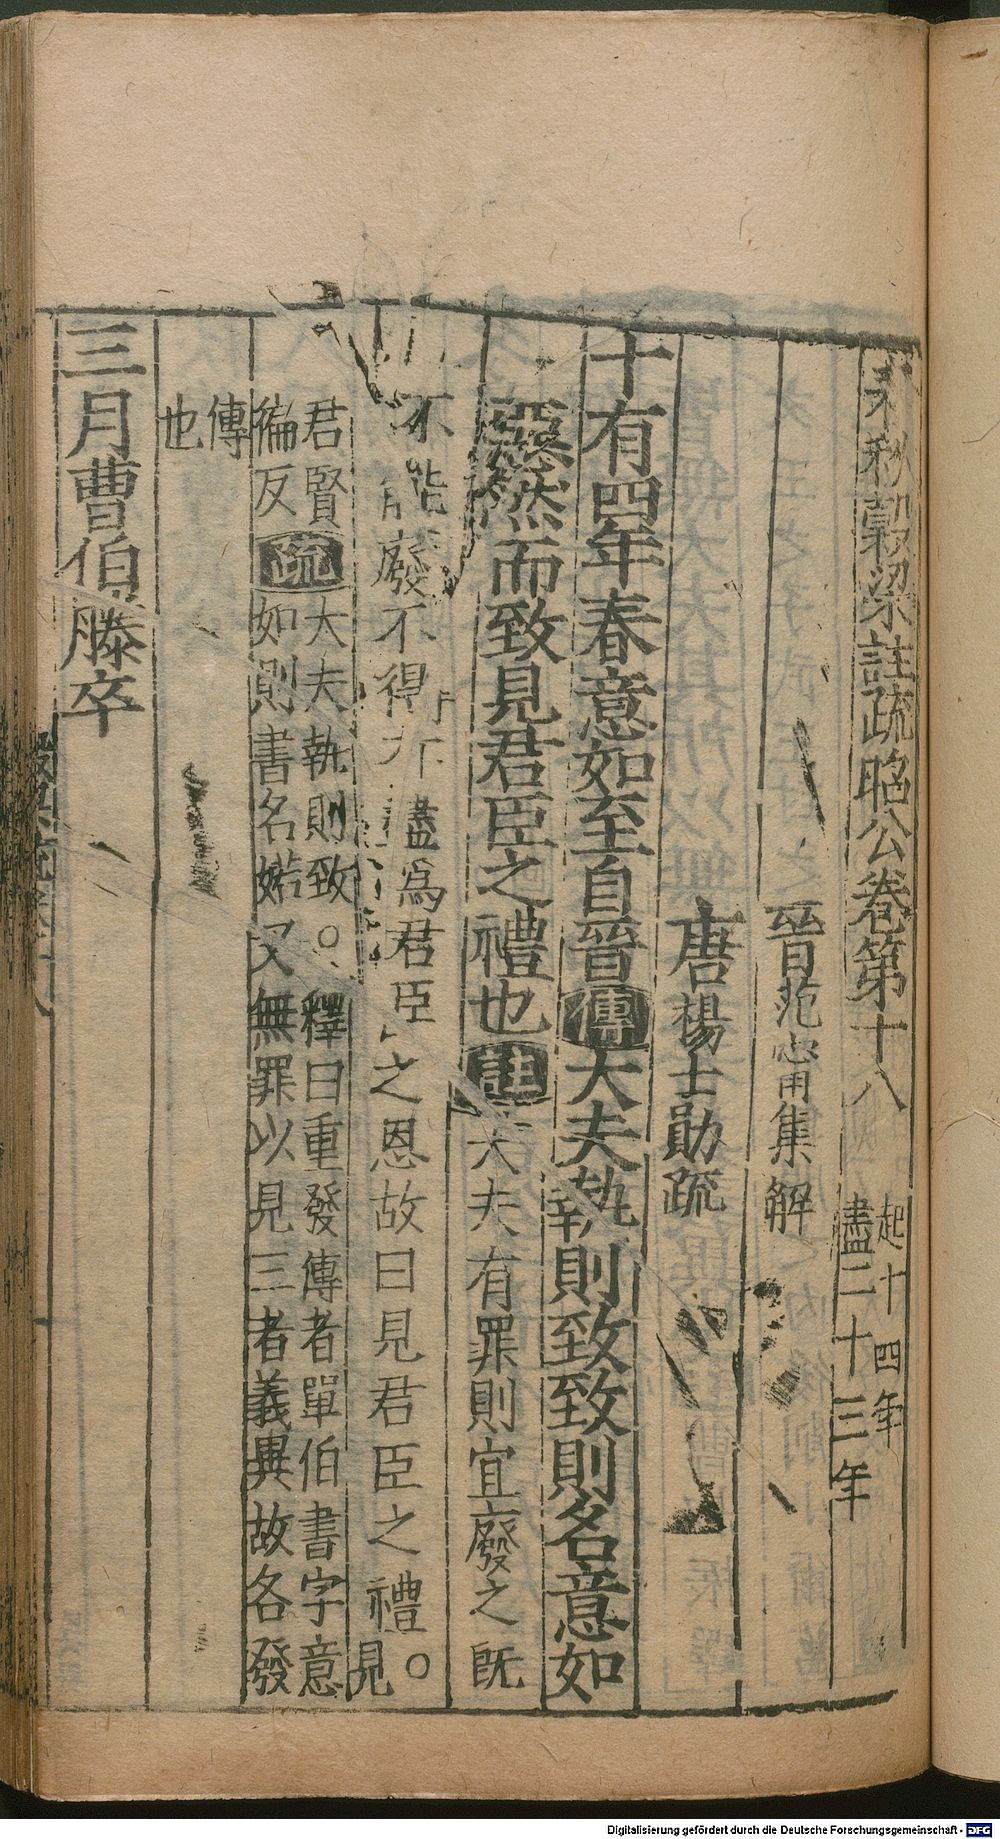 春秋穀梁註疏昭公卷第十八 起十四年
盡二十三年
晉范甯集解
唐楊士勛疏
十有四年春意如至自晉傳大夫執則致致則名意如
惡然而致見君臣之禮也註大夫有罪則宜廢之既
不能廢不得不盡爲君臣之恩故曰見君臣之禮○見
君賢 大夫執則致○釋曰重發傳者單伯書字意
徧反疏 如則書名婼又無罪以見三者義異故各發
傳
也
三月曹伯滕卒
Digitalisierung gefördert durch die Deutsche Forschungsgemeinschaft - DFG